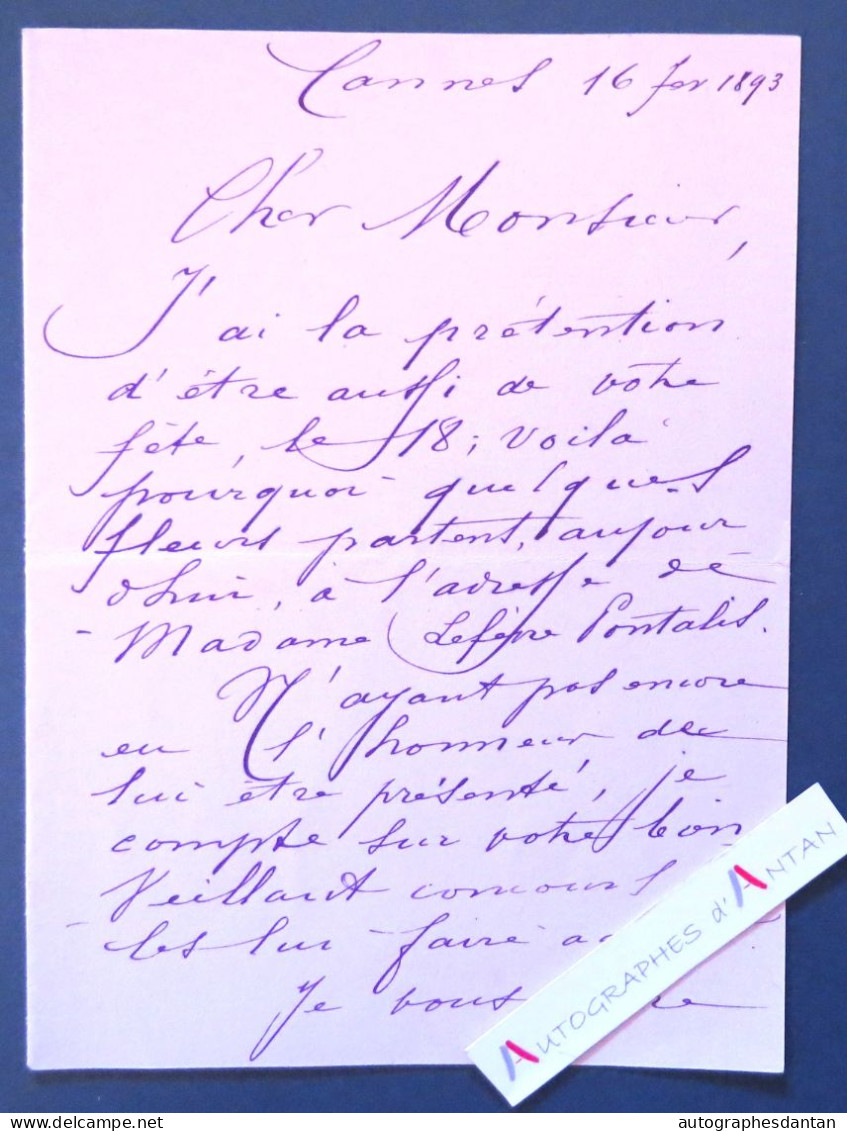 Cannes 16 fev 1893
Cher Monsieur,
J'ai la prétention
d'être aussi de votre
fête, le 18; voilà
pourquoi quelques
fleurs partent, aujour
d'hui, à l'adresse de
Madame Lefèvre Pontalis.
N'ayant pas encore
eu l'honneur de
lui être présenté, je
compte sur votre bien
veillant concours
les lui faire
Je vous
AUTOGRAPHES d'ANTAN
delcampe.net
autographesdantan